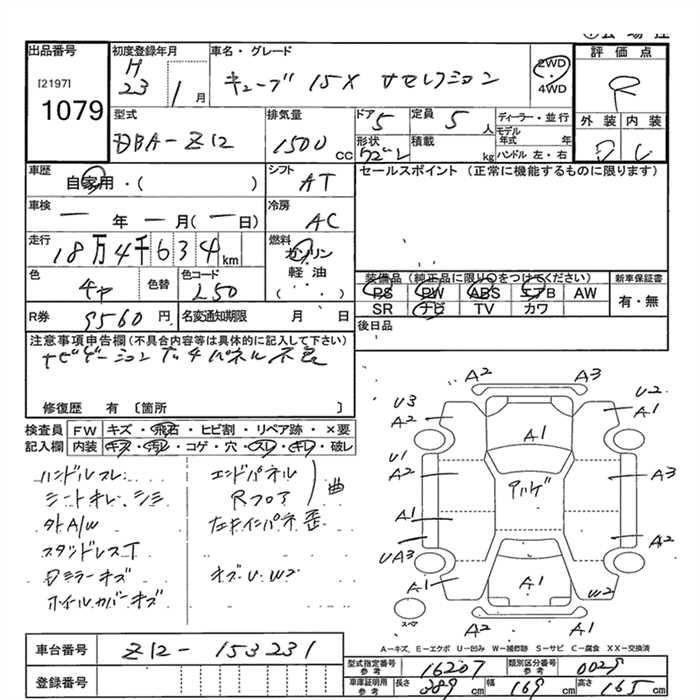 出品番号 初度登録年月 車名・グレード 評価点
[2197] H 23 1月 キューブ 15X Vセレクション 2WD R
1079 4WD
外装 内装
型式 排気量 ドア 5 定員 5人 ディーラー・並行
DBA-Z12 1500cc 形状 積載 kg モデル年式 年
ハンドル 左・右
車歴 シフト セールスポイント (正常に機能するものに限ります)
自家用・( ) AT
車検 冷房
一年一月(一日) AC
走行 燃料
18万4千634km ガソリン
軽油
色 色替 色コード ( ・・ ) 装備品(純正品に限り○をつけてください) 新車保証書
L50 PS PW ABS エアB AW 有・無
R券 9560円 名変通知期限 月 日 SR ナビ TV カワ
後日品
注意事項申告欄(不具合内容等は具体的に記入して下さい)
ナビゲーション タッチパネル不良
修復歴 有 〔箇所 〕
検査員 FW キズ・飛石・ヒビ割・リペア跡・×要
記入欄 内装 キズ・汚レ・コゲ・穴・スレ・キレ・破レ
ハンドルスレ エンドパネル
シートキレ、シミ Rフロア 曲
社外A/W
スタッドレスT
ミラーキズ キズ・U・W2
ホイルカバーキズ
A2 A3
U3 A2 U2 A1
A1
U1 A2 A3
A1
A2
UA3
A1 A1 W2
スペア
A−キズ, E−エクボ U−凹み W−補修跡 S−サビ C−腐食 XX−交換済
車台番号 Z12-153231
型式指定番号 参考 16207 類別区分番号 参考 0029
登録番号 車庫証明用 参考 長さ 389cm 幅 169cm 高さ 165cm